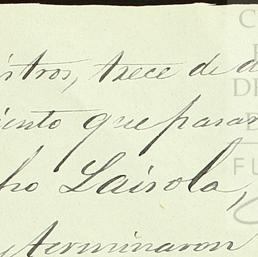 istros, trece de d
iento que pasar
cho Lairola,
y terminaron